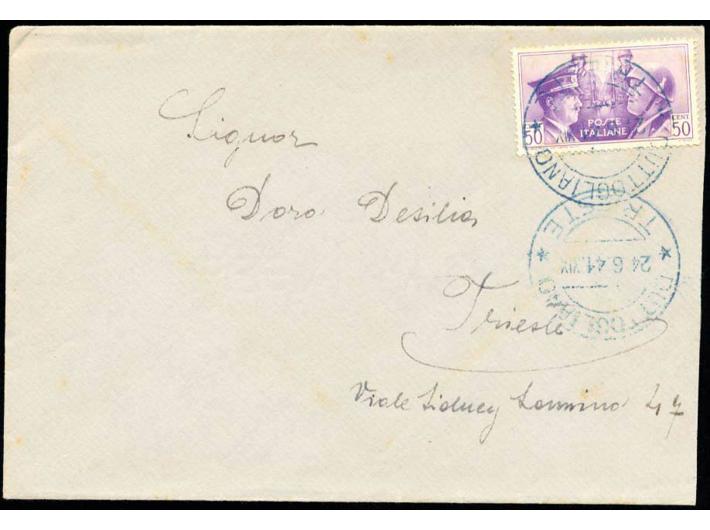 50
POSTE
ITALIANE
CENT
50
DUTTOGLIANO
TRIESTE
24.6.41.XIX
DUTTOGLIANO
Signor
Doro Desilia
Trieste
Viale Sidney Sonnino 47